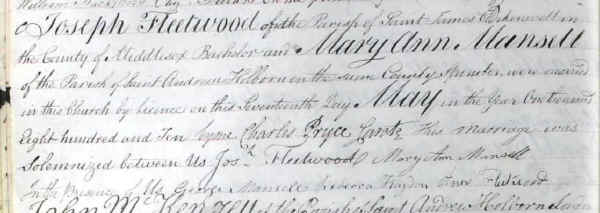 Joseph Fleetwood of the Parish of Saint James Clerkenwell in
the County of Middlesex Bachelor and Mary Ann Mansell
of the Parish of Saint Andrew Holborn in the same County Spinster were married
in this Church by Licence on this Seventeenth Day May in the Year One thousand
Eight hundred and Ten by me Charles Pryce This marriage was
Solemnized between Us Josh. Fleetwood Mary Ann Mansell
In the Presence of Us George Mansell Ann Fleetwood
John McKenzey of the Parish of Saint Andrew Holborn